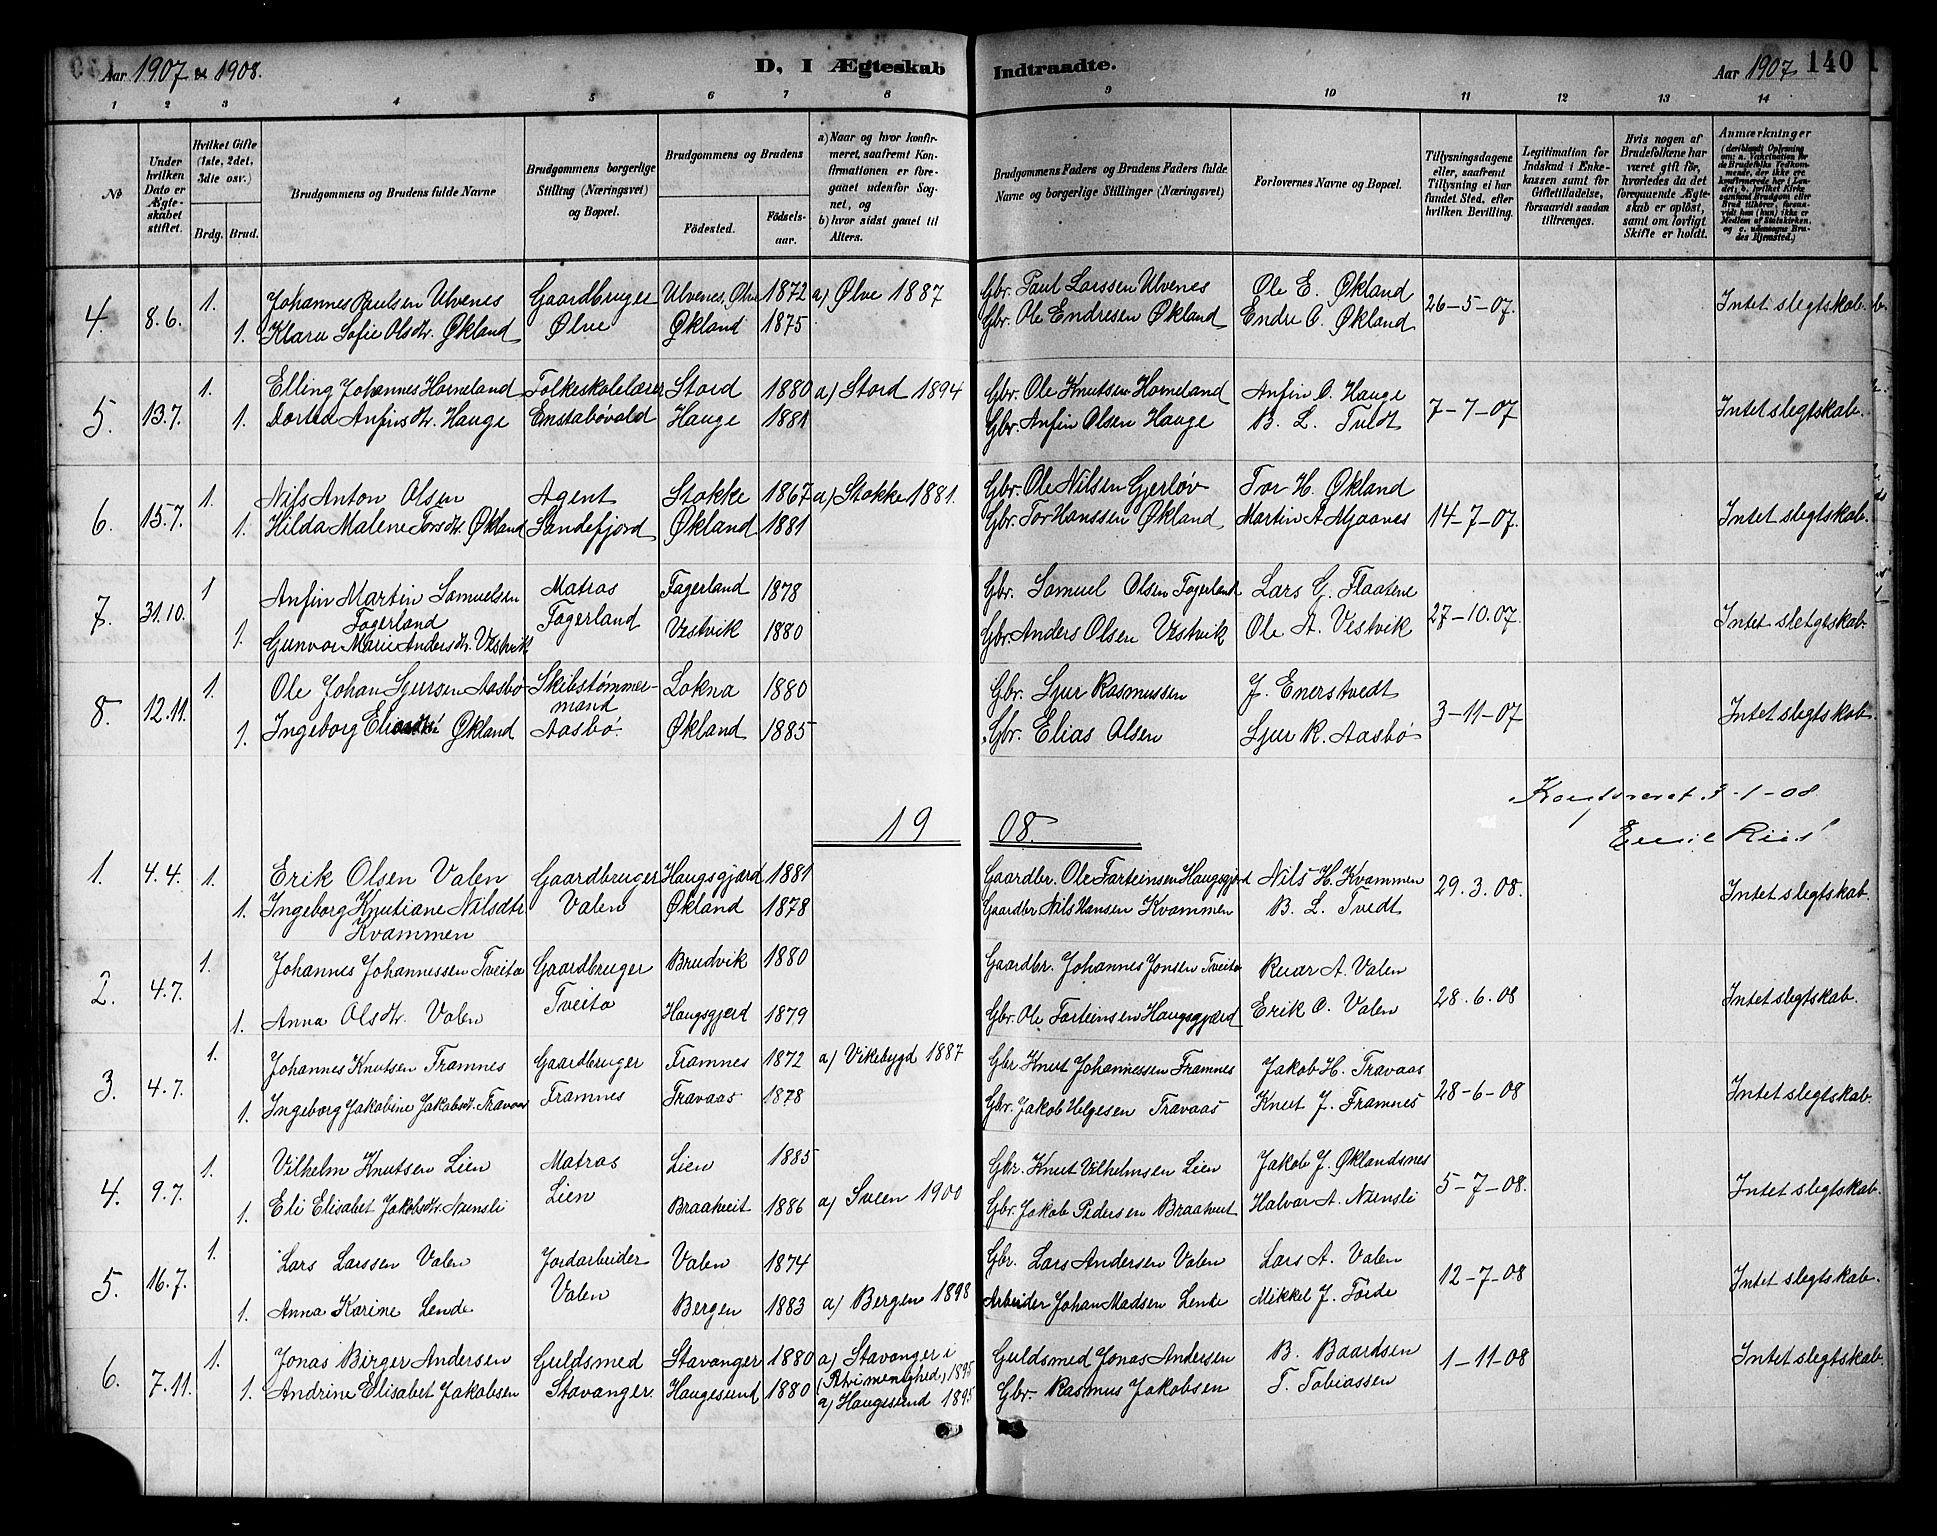 Aar 1907 & 1908.
D, I Ægteskab
Indtraadte.
Aar 1907
140
1 2 3 4 5 6 7 8 9 10 11 12 13 14
No
Under hvilken Dato er Ægteskabet stiftet.
Hvilket Gifte (1ste, 2det, 3die osv.)
Brdg. Brud.
Brudgommens og Brudens fulde Navne
Brudgommens borgerlige Stilling (Næringsvei) og Bopæl.
Brudgommens og Brudens
Födested.
Födselsaar.
a) Naar og hvor konfirmeret, saafremt Konfirmationen er foregaaet udenfor Sognet, og
b) hvor sidst gaaet til Alters.
Brudgommens Faders og Brudens Faders fulde Navne og borgerlige Stillinger (Næringsvei)
Forlovernes Navne og Bopæl.
Tillysningsdagene eller, saafremt Tillysning ei har fundet Sted, efter hvilken Bevilling.
Legitimation for Indskud i Enkekassen samt for Giftetilladelse, forsaavidt saadan tiltrænges.
Hvis nogen af Brudefolkene har været gift för, hvorledes da det foregaaende Ægteskab er oplöst, samt om lovligt Skifte er holdt.
Anmærkninger
4. 8.6. 1. Johannes Paulsen Ulvenes Gaardbruger Ulvenes, Ølve 1872 a) Ølve 1887 Gbr. Paul Larssen Ulvenes Ole E. Økland 26-5-07. Intet slegtskab.
1. Klara Sofie Olsdtr. Økland Ølve Økland 1875 Gbr. Ole Endresen Økland Endre O. Økland
5. 13.7. 1. Elling Johannes Horneland Folkeskolelærer Stord 1880 a) Stord 1894 Gbr. Ole Knutsen Horneland Anfin O. Hauge 7-7-07 Intet slegtskab.
1. Dortea Anfinsdtr. Hauge Enstabøvold Hauge 1881 Gbr. Anfin Olsen Hauge B. L. Tvedt
6. 15.7. 1. Nils Anton Olsen Agent Stokke 1867 a) Stokke 1881. Gbr. Ole Nilsen Gjerløv Tor H. Økland 14-7-07. Intet slegtskab.
1. Hilda Malene Torsdtr. Økland Sandefjord Økland 1881 Gbr. Tor Hanssen Økland Martin A Mjaanes
7. 31.10. 1 Anfin Martin Samuelsen Matros Fagerland 1878 Gbr. Samuel Olsen Fagerland Lars G. Flaatene 27-10.07. Intet sletgtskab.
Fagerland Fagerland
1. Gunvor Marie Andersdtr. Vestvik Vestvik 1880 Gbr Anders Olsen Vestvik Ole A. Vestvik
8. 12.11. 1. Ole Johan Sjursen Aasbø Skibstømmer- Lokna 1880 Gbr. Sjur Rasmussen J. Enerstvedt 3-11-07 Intet slegtskab.
mand
1. Ingeborg Økland Aasbø Økland 1885 Gbr. Elias Olsen Sjur R. Aasbø
-1-08
Emil Riis
19 08.
1. 4.4. 1. Erik Olsen Valen Gaardbruger Haugsgjærd 1881 Gaardbr. Ole Farteinsen Haugsgjerd Nils H. Kvammen 29.3.08. Intet slegtskab.
1. Ingeborg Knutiane Nilsdtr Valen Økland 1878 Gaardbr Nils Hansen Kvammen B. L. Tvedt
Kvammen
2. 4.7. 1. Johannes Johannessen Tveita Gaardbruger Brudvik 1880 Gaardbr. Johannes Jonsen Tveita A. Valen 28.6.08 Intet slegtskab.
Tveita
1. Anna Olsdtr. Valen Haugsgjerd 1879 Gbr. Ole Farteinsen Haugsgjærd Erik O. Valen
3. 4.7. 1. Johannes Knutsen Framnes Gaardbruger Framnes 1872 a) Vikebygd 1887 Gbr Knut Johannessen Framnes Jakob H. Travaas 28-6-08 Intet slegtskab.
1. Ingeborg Jakobine Jakobsdt. Travaas Framnes Travaas 1878 Gbr. Jakob Helgesen Travaas Knut J. Framnes
4. 9.7. 1. Vilhelm Knutsen Lien Matros Lien 1885 Gbr. Knut Vilhelmsen Lien Jakob J. Øklandsnes 5-7-08. Intet slegtskab.
Lien
1. Eli Elisabet Jakobsdtr. Nænsli Braatveit 1886 a) Sveen 1900 Gbr. Jakob Pedersen Braatveit Halvar A. Nænsli
5. 16.7. 1. Lars Larssen Valen Jordarbeider Valen 1874 Gbr. Lars Andersen Valen Lars A. Valen 12-7-08 Intet slegtskab.
Valen
1. Anna Karine Lende Bergen 1883 a) Bergen 1898 Arbeider Johan Madsen Lende Mikkel J. Førde
6. 7.11. 1. Jonas Birger Andersen Guldsmed Stavanger 1880 a) Stavanger i Guldsmed Jonas Andersen B. Baardsen 1-11-08 Intet slegtskab.
(Petri menighed) 1895
1. Andrine Elisabet Jakobsen Stavanger. Haugesund 1880 a) Haugesund 1895 Gbr. Rasmus Jakobsen T. Tobiassen